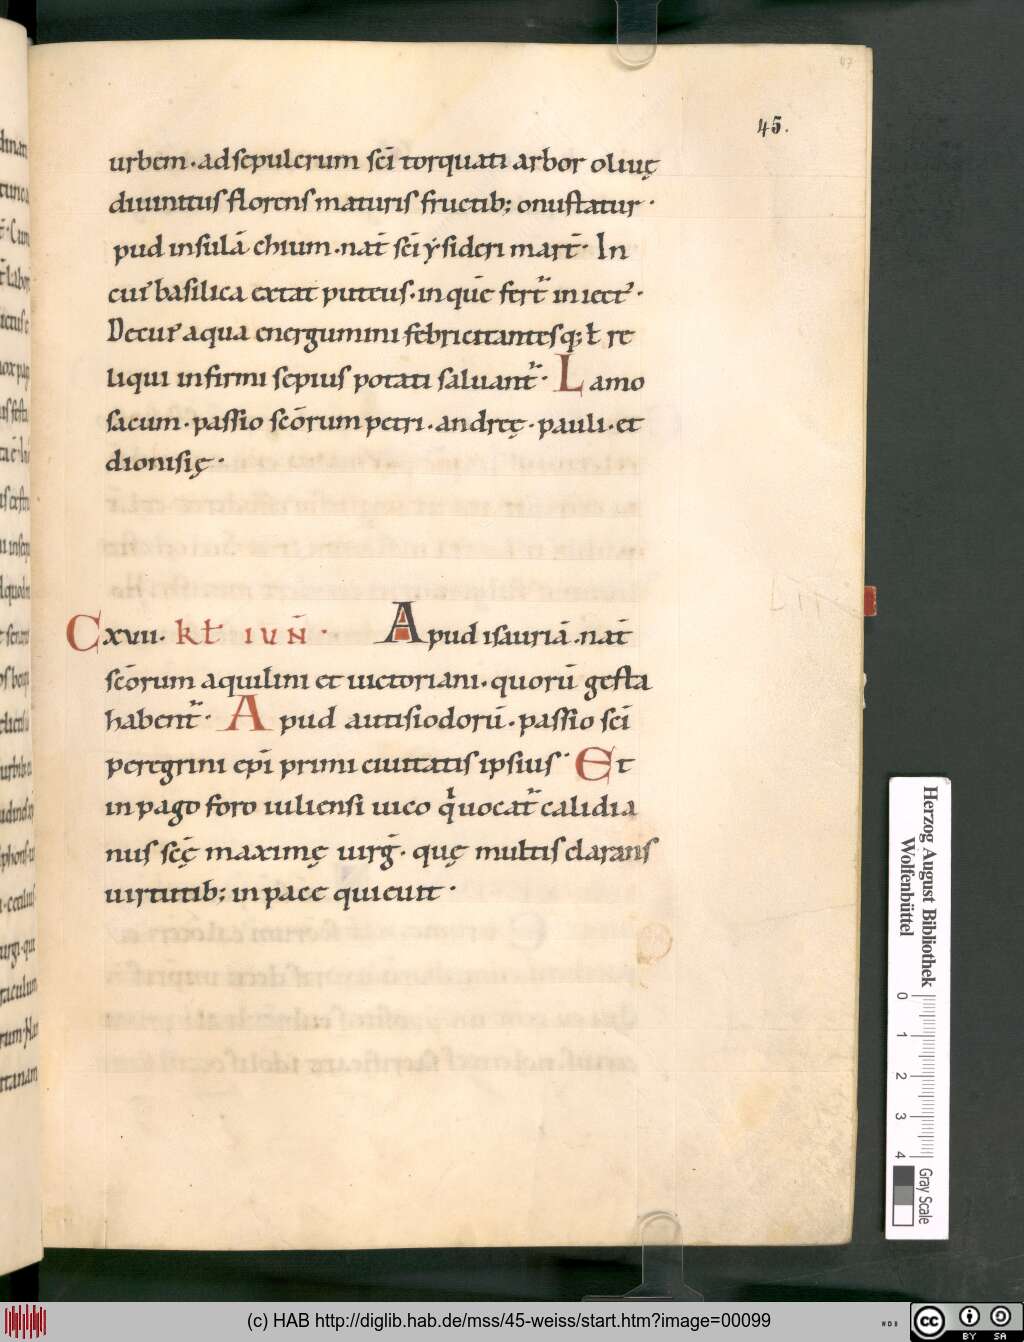 45.
urbem · ad sepulcrum scı̄ torquati arbor oliuę
diuinitus florens maturis fructib; onustatur ·
pud insulā chium · nat̄ scı̄ ẏsideri mart̄ · In
cui' basilica extat puteus · in quē fert᷑ iniect' ·
De cui' aqua energumini febricitantesq; ł re
liqui infirmi sepius potati saluant᷑ · Lamo
sacum · passio scōrum petri · andreę · pauli · et
dionisię ·
C xvii · kł iun̄ · Apud isauriā · nat̄
scōrum aquilini et uictoriani · quorū gesta
habent᷑ · Apud autisiodorū · passio scı̄
peregrini epı̄ primi ciuitatis ipsius · Et
in pago foro iuliensi uico q̇ uocat᷑ calidia
nus scę̄ maximę uirḡ · quę multis clarans
uirtutib; in pace quieuit ·
Herzog August Bibliothek
Wolfenbüttel
0 1 2 3 4
Gray Scale
(c) HAB http://diglib.hab.de/mss/45-weiss/start.htm?image=00099
cc BY SA